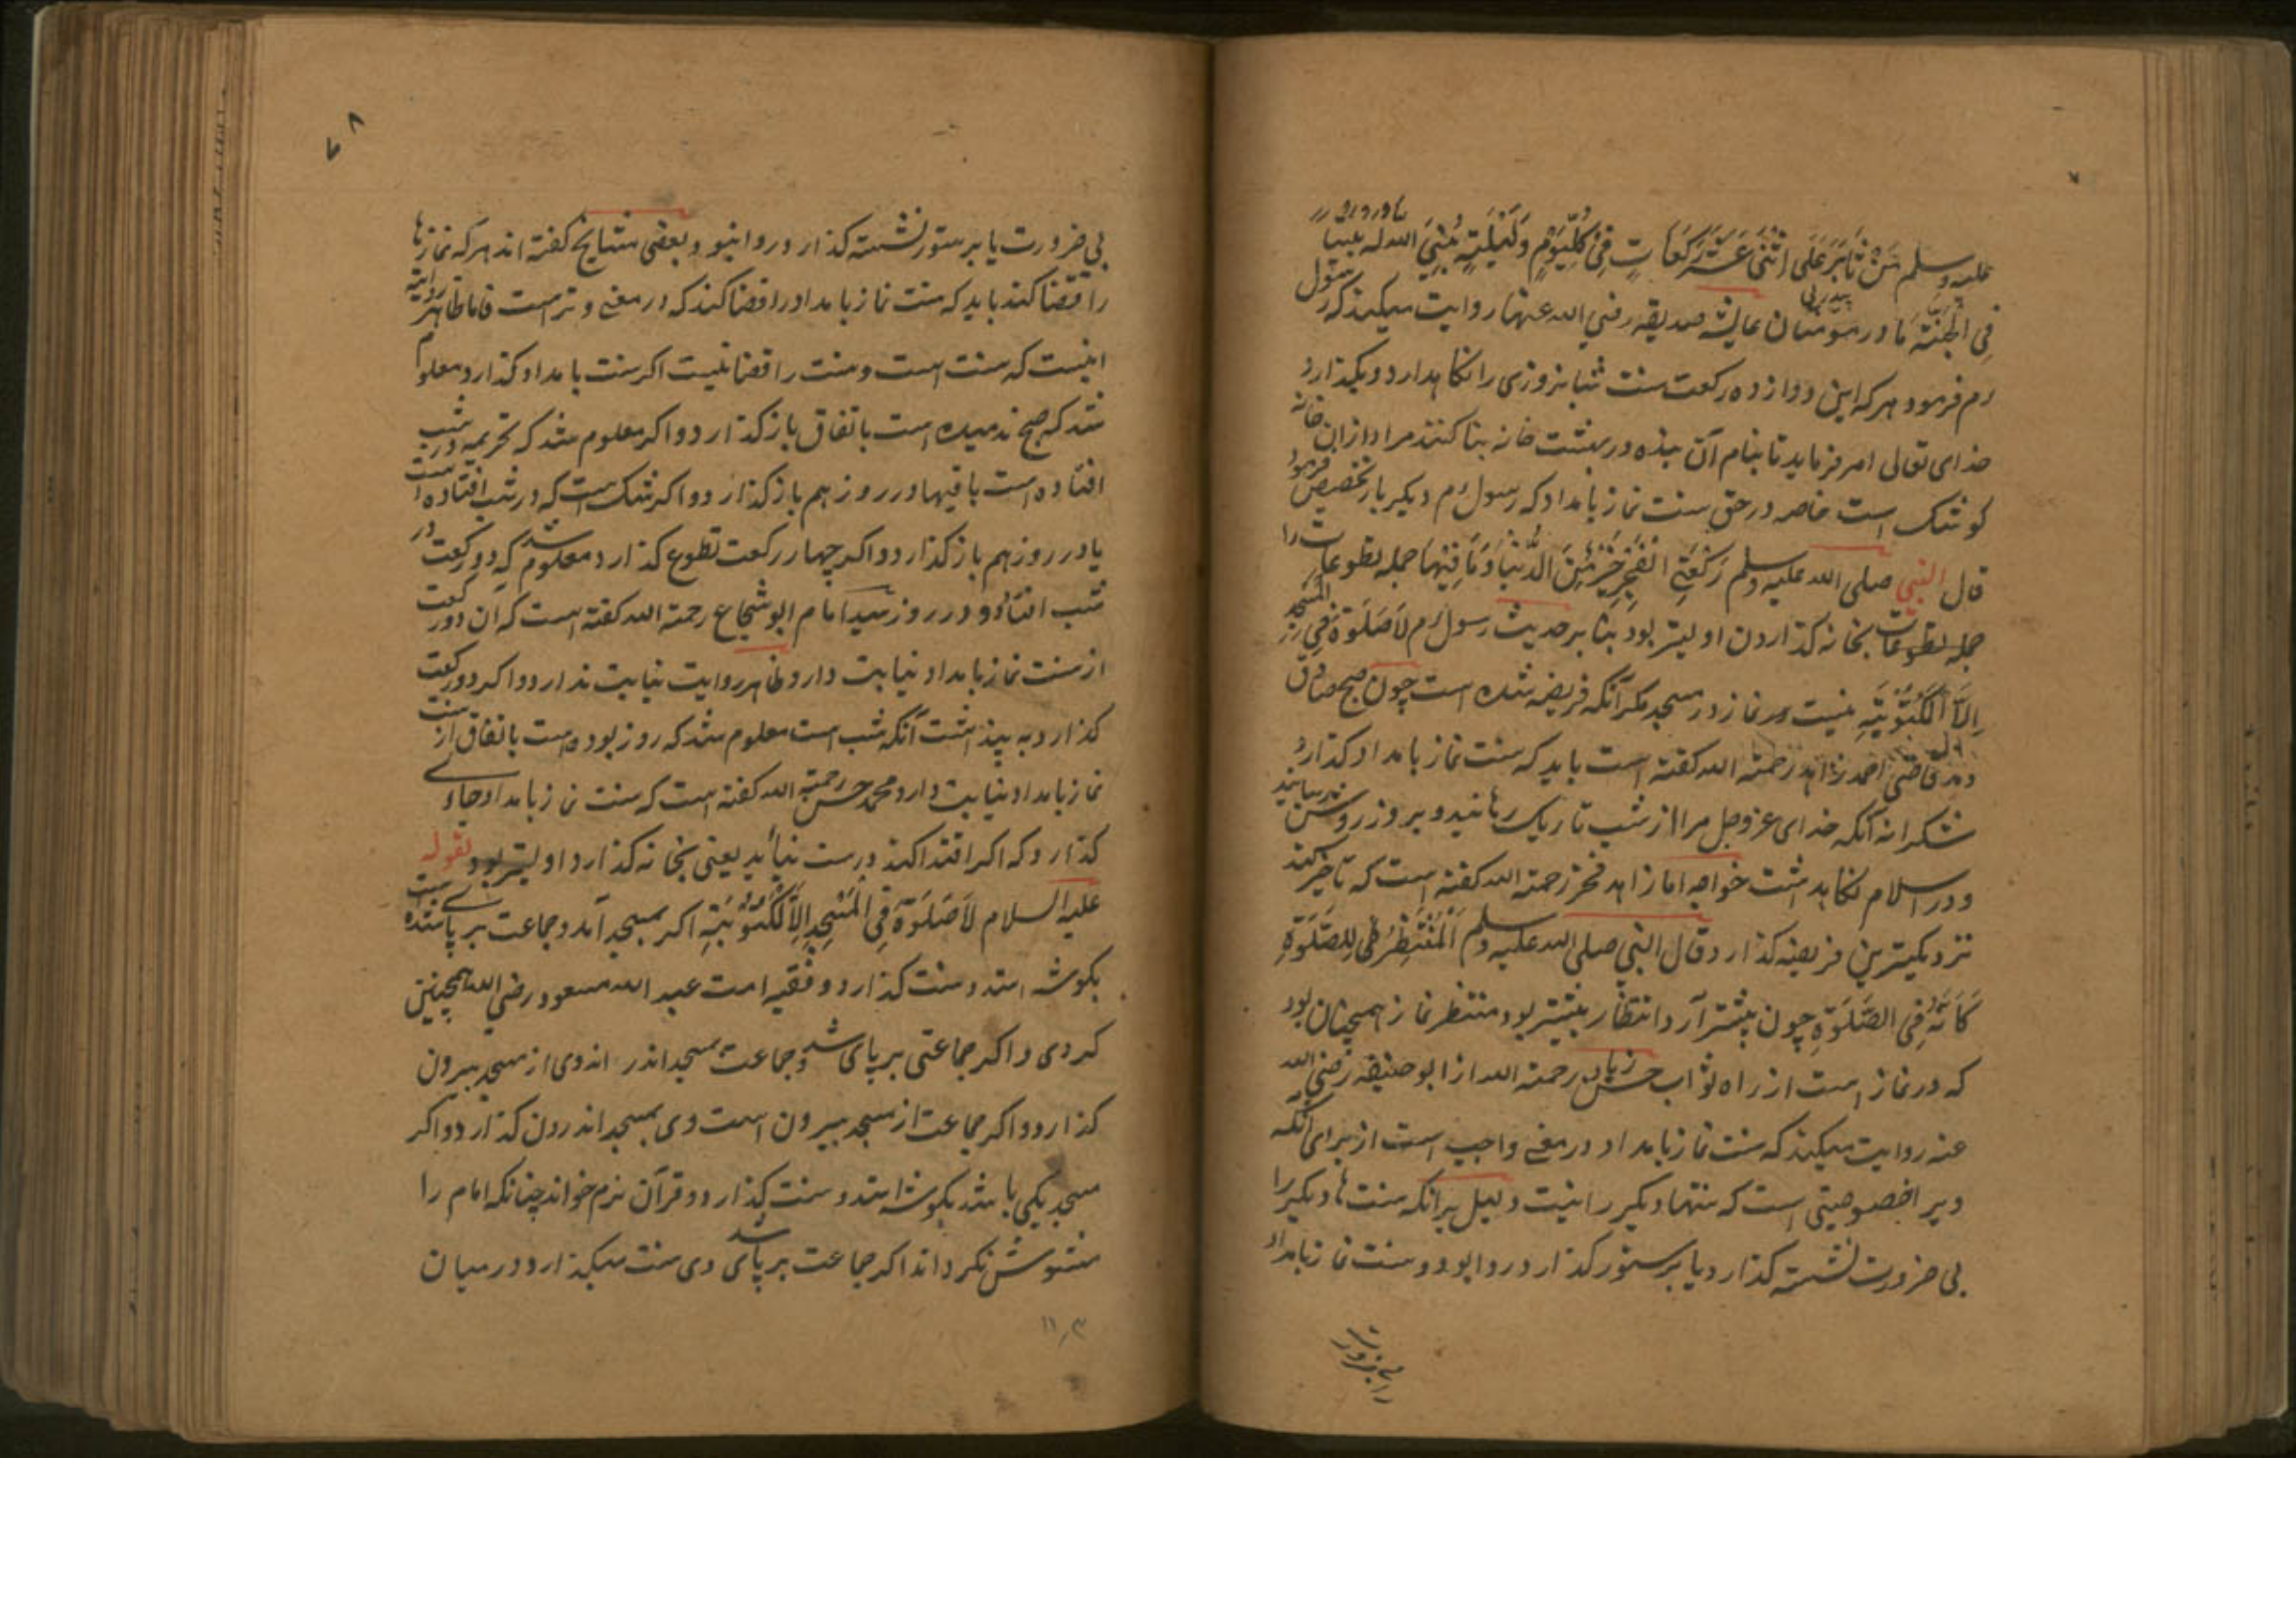 علیه وسلم مَنْ ثَابَرَ عَلَی اثْنَیْ عَشَرَ رَکَعَاتٍ فِیْ کُلِّ یَوْمٍ وَلَیْلَتِهٖ بُنِیَ الله له بیتا
فِی الْجَنَّةِ مادر مومنان عایشه صدیقه رضی الله عنها روایت میکند که رسول
رم فرمود هر که این دوازده رکعت سنت شبانروزی را نکاهدارد و بکذارد
خدای تعالی امر فرماید تا بنام آن بنده در بهشت خانه بنا کنند مراد ازان خانه
کوشک است خاصه در حق سنت نماز بامداد که رسول رم دیکر بار تخصیص فرمود
قال النبی صلی الله علیه وسلم رَکْعَتَیِ الْفَجْرِ خَیْرٌ مِّنَ الدُّنْیَا وَمَا فِیْهَا جمله تطوعات را
جمله تطوعات بخانه کذاردن اولیتر بود بنا بر حدیث رسول رم لَاصَلٰوةَ فِی الْمَسْجِدِ
اِلَّا الْمَکْتُوْبَتِهِ نیست نماز در مسجد مکر آنکه فریضه شده است چون صبح صادق
دمد قاضی احمد زاهد رحمة الله کفته است باید که سنت نماز بامداد کذارد
شکرانه آنکه خدای عزوجل مرا از شب تاریک رهانید و بروز روشن رسانید
و در اسلام نکاهداشت خواجه امام زاهد فخر رحمة الله کفته است که تاخیر کند
نزدیکترین فریضه کذارد قال النبی صلی الله علیه وسلم اَلْمُنْتَظِرُ لِلصَّلٰوةِ
کَاَنَّهُ فِی الصَّلٰوةِ چون پیشتر آرد انتظار بیشتر بود منتظر نماز همچنان بود
که در نماز است از راه ثواب حسن زیاد رحمة الله از ابو حنیفه رضی الله
عنه روایت میکند که سنت نماز بامداد در معنے واجب است از برای آنکه
ویرا خصوصیتی است که سنتها دیکر را نیست دلیل برانکه سنت ها دیکر را
بی ضرورت نشسته کذارد یا بر ستور کذارد روا بود و سنت نماز بامداد
بی ضرورت
بی ضرورت یا بر ستور نشسته کذارد روا نبود و بعضی مشایخ کفته اند هر که نمازها
را قضا کند باید که سنت نماز بامداد را قضا کند که در معنے وتر است فاما ظاهر روایة
اینست که سنت است و سنت را قضا نیست اکر سنت بامداد کذارد و معلوم
شد که صبح ندمیده است باتفاق باز کذارد و اکر معلوم شد که تحریمه در شب
افتاده است باقیها در روز هم باز کذارد و اکر شک است که در شب افتاده است
یا در روز هم باز کذارد و اکر چهار رکعت تطوع کذارد معلوم شد که دو رکعت در
شب افتاد و دو در روز سید امام ابو شجاع رحمة الله کفته است که ان دو رکعت
از سنت نماز بامداد نیابت دارد و ظاهر روایت نیابت ندارد و اکر دو رکعت
کذارد به پنداشت آنکه شب است معلوم شد که روز بوده است باتفاق از سنت
نماز بامداد نیابت دارد محمد حسن رحمة الله کفته است که سنت نماز بامداد جاے
کذارد که اکر اقتدا کند درست نیاید یعنی بخانه کذارد اولیتر بود لقوله
علیه السلام لَاصَلٰوةَ فِی الْمَسْجِدِ اِلَّا الْمَکْتُوْبَتِهِ اکر بمسجد آمد و جماعت بر پاے شده است
بکوشه استد و سنت کذارد و فقیه امت عبد الله مسعود رضی الله همچنین
کردی و اکر جماعتی بر پای شد و جماعت بمسجد اندر اند وی از مسجد بیرون
کذارد و اکر جماعت از مسجد بیرون است وی بمسجد اندرون کذارد و اکر
مسجد یکی باشد بکوشه استد و سنت کذارد و قرآن نرم خواند چنانکه امام را
مشوش نکرداند اکر جماعت بر پای شد وی سنت میکذارد در میان